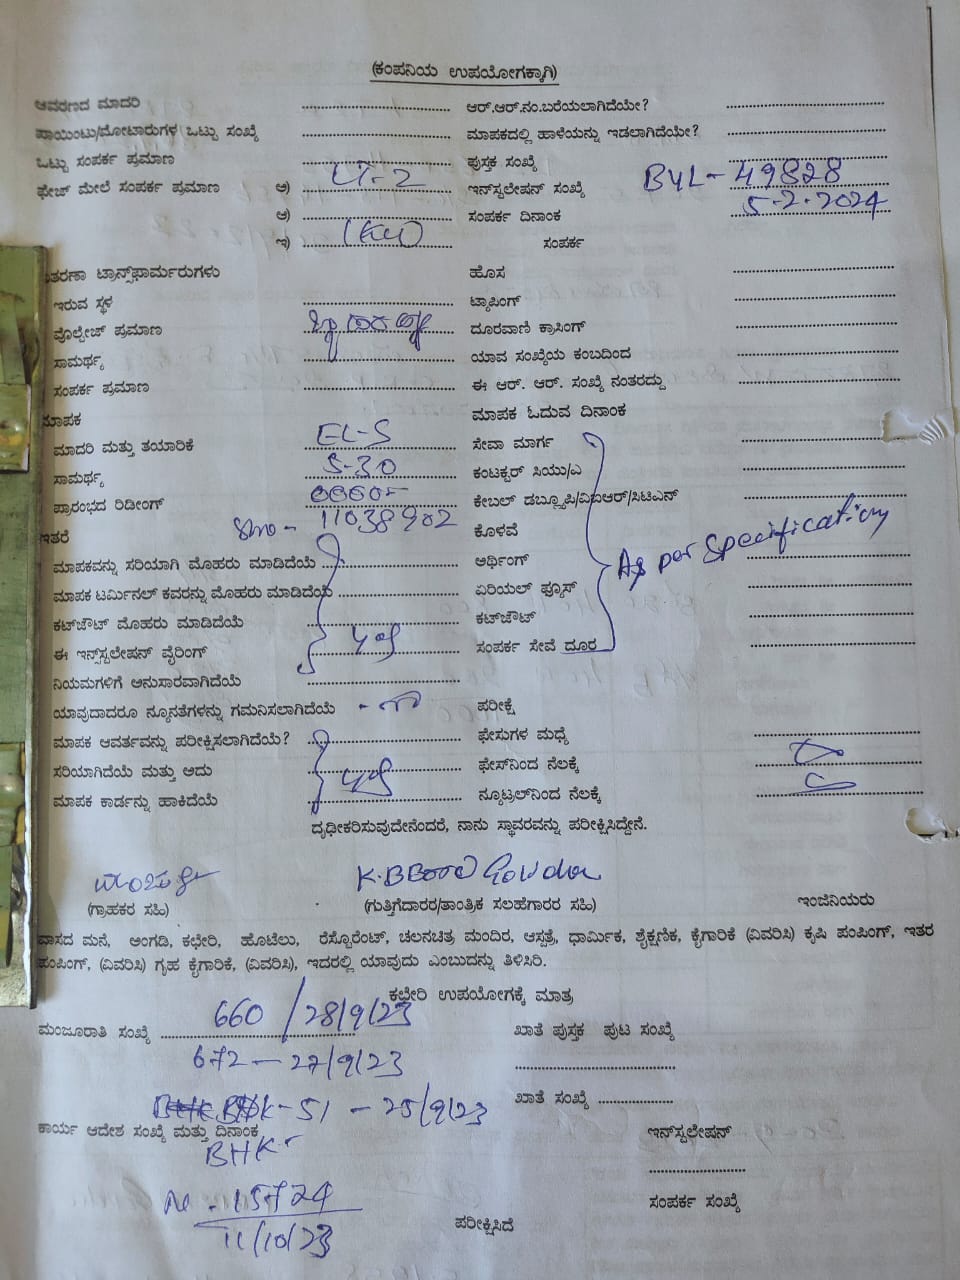 (ಕಂಪನಿಯ ಉಪಯೋಗಕ್ಕಾಗಿ)
ಆವರಣದ ಮಾದರಿ ಆರ್.ಆರ್.ನಂ.ಬರೆಯಲಾಗಿದೆಯೇ?
ಪಾಯಿಂಟು/ಮೋಟಾರುಗಳ ಒಟ್ಟು ಸಂಖ್ಯೆ ಮಾಪಕದಲ್ಲಿ ಹಾಳೆಯನ್ನು ಇಡಲಾಗಿದೆಯೇ?
ಒಟ್ಟು ಸಂಪರ್ಕ ಪ್ರಮಾಣ ಪುಸ್ತಕ ಸಂಖ್ಯೆ
ಫೇಜ್ ಮೇಲೆ ಸಂಪರ್ಕ ಪ್ರಮಾಣ ಅ) LT-2 ಇನ್‌ಸ್ಟಲೇಷನ್ ಸಂಖ್ಯೆ BYL-49828
ಆ) ಸಂಪರ್ಕ ದಿನಾಂಕ 5-2-2024
ಇ) 1KW ಸಂಪರ್ಕ
ತರಣಾ ಟ್ರಾನ್ಸ್‌ಫಾರ್ಮರುಗಳು ಹೊಸ
ಇರುವ ಸ್ಥಳ ಟ್ಯಾಪಿಂಗ್
ವೊಲ್ಟೇಜ್ ಪ್ರಮಾಣ ದೂರವಾಣಿ ಕ್ರಾಸಿಂಗ್
ಸಾಮರ್ಥ್ಯ ಯಾವ ಸಂಖ್ಯೆಯ ಕಂಬದಿಂದ
ಸಂಪರ್ಕ ಪ್ರಮಾಣ ಈ ಆರ್. ಆರ್. ಸಂಖ್ಯೆ ನಂತರದ್ದು
ಮಾಪಕ ಮಾಪಕ ಓದುವ ದಿನಾಂಕ
ಮಾದರಿ ಮತ್ತು ತಯಾರಿಕೆ EL-S ಸೇವಾ ಮಾರ್ಗ
ಸಾಮರ್ಥ್ಯ 5-30 ಕಂಟಕ್ಟರ್ ಸಿಯು/ಎ
ಪ್ರಾರಂಭದ ರಿಡೀಂಗ್ ಕೇಬಲ್ ಡಬ್ಲ್ಯೂಪಿ/ವಿಐಆರ್/ಸಿಟಿಎಸ್
ಇತರೆ Slno - 11038902 ಕೊಳವೆ
ಮಾಪಕವನ್ನು ಸರಿಯಾಗಿ ಮೊಹರು ಮಾಡಿದೆಯೆ ಅರ್ಥಿಂಗ್ As per Specification
ಮಾಪಕ ಟರ್ಮಿನಲ್ ಕವರನ್ನು ಮೊಹರು ಮಾಡಿದೆಯೆ ಏರಿಯಲ್ ಫ್ಯೂಸ್
ಕಟ್‌ಔಟ್ ಮೊಹರು ಮಾಡಿದೆಯೆ ಕಟ್‌ಔಟ್
ಈ ಇನ್‌ಸ್ಟಲೇಷನ್ ವೈರಿಂಗ್ ಸಂಪರ್ಕ ಸೇವೆ ದೂರ
ನಿಯಮಗಳಿಗೆ ಅನುಸಾರವಾಗಿದೆಯೆ
ಯಾವುದಾದರೂ ನ್ಯೂನತೆಗಳನ್ನು ಗಮನಿಸಲಾಗಿದೆಯೆ ಪರೀಕ್ಷೆ
ಮಾಪಕ ಆವರ್ತವನ್ನು ಪರೀಕ್ಷಿಸಲಾಗಿದೆಯೆ? ಫೇಸುಗಳ ಮಧ್ಯೆ
ಸರಿಯಾಗಿದೆಯೆ ಮತ್ತು ಅದು ಫೇಸ್‌ನಿಂದ ನೆಲಕ್ಕೆ
ಮಾಪಕ ಕಾರ್ಡನ್ನು ಹಾಕಿದೆಯೆ ನ್ಯೂಟ್ರಲ್‌ನಿಂದ ನೆಲಕ್ಕೆ
ದೃಢೀಕರಿಸುವುದೇನೆಂದರೆ, ನಾನು ಸ್ಥಾವರವನ್ನು ಪರೀಕ್ಷಿಸಿದ್ದೇನೆ.
(ಗ್ರಾಹಕರ ಸಹಿ) (ಗುತ್ತಿಗೆದಾರರ/ತಾಂತ್ರಿಕ ಸಲಹೆಗಾರರ ಸಹಿ) ಇಂಜಿನಿಯರು
ವಾಸದ ಮನೆ, ಅಂಗಡಿ, ಕಛೇರಿ, ಹೊಟೆಲು, ರೆಸ್ಟೊರೆಂಟ್, ಚಲನಚಿತ್ರ ಮಂದಿರ, ಆಸ್ಪತ್ರೆ, ಧಾರ್ಮಿಕ, ಶೈಕ್ಷಣಿಕ, ಕೈಗಾರಿಕೆ (ವಿವರಿಸಿ) ಕೃಷಿ ಪಂಪಿಂಗ್, ಇತರ
ಪಂಪಿಂಗ್, (ವಿವರಿಸಿ) ಗೃಹ ಕೈಗಾರಿಕೆ, (ವಿವರಿಸಿ), ಇದರಲ್ಲಿ ಯಾವುದು ಎಂಬುದನ್ನು ತಿಳಿಸಿರಿ.
ಕಛೇರಿ ಉಪಯೋಗಕ್ಕೆ ಮಾತ್ರ
ಮಂಜೂರಾತಿ ಸಂಖ್ಯೆ 660 / 28/9/23 ಖಾತೆ ಪುಸ್ತಕ ಪುಟ ಸಂಖ್ಯೆ
672 - 27/9/23
51 - 25/9/23 ಖಾತೆ ಸಂಖ್ಯೆ
ಕಾರ್ಯ ಆದೇಶ ಸಂಖ್ಯೆ ಮತ್ತು ದಿನಾಂಕ ಇನ್‌ಸ್ಟಲೇಷನ್
BHK
15724 ಸಂಪರ್ಕ ಸಂಖ್ಯೆ
11/10/23 ಪರೀಕ್ಷಿಸಿದೆ